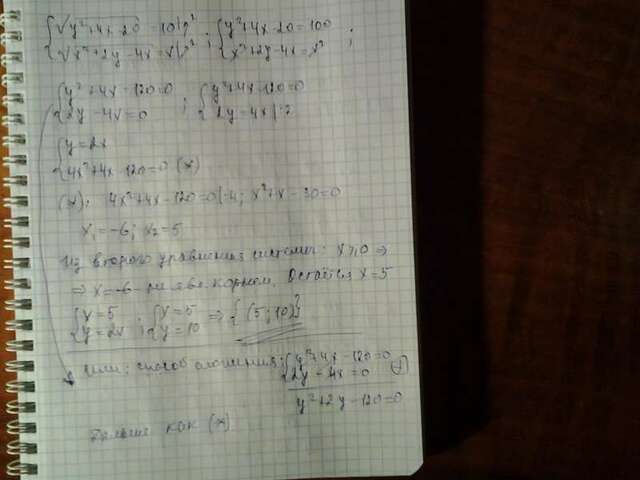 { √y²+4x-20 = 10 |² ; { y²+4x-20 = 100 ;
{ √x²+2y-4x = x |² { x²+2y-4x = x²
{ y²+4x-120=0 ; { y²+4x-120=0
{ 2y-4x=0 { 2y=4x |:2
{ y=2x
{ 4x²+4x-120=0 (x)
(x): 4x²+4x-120=0 |:4; x²+x-30=0
x₁=-6; x₂=5
Из второго уравнения системы: x⩾0 ⇒
⇒ x=-6 - не явл. корнем. Остаётся x=5
{ x=5 ; { x=5 ⇒ {(5;10)}
{ y=2x { y=10
Или: способ сложения: { y²+4x-120=0
{ 2y-4x=0 (+)
y²+2y-120=0
Дальше как (x)